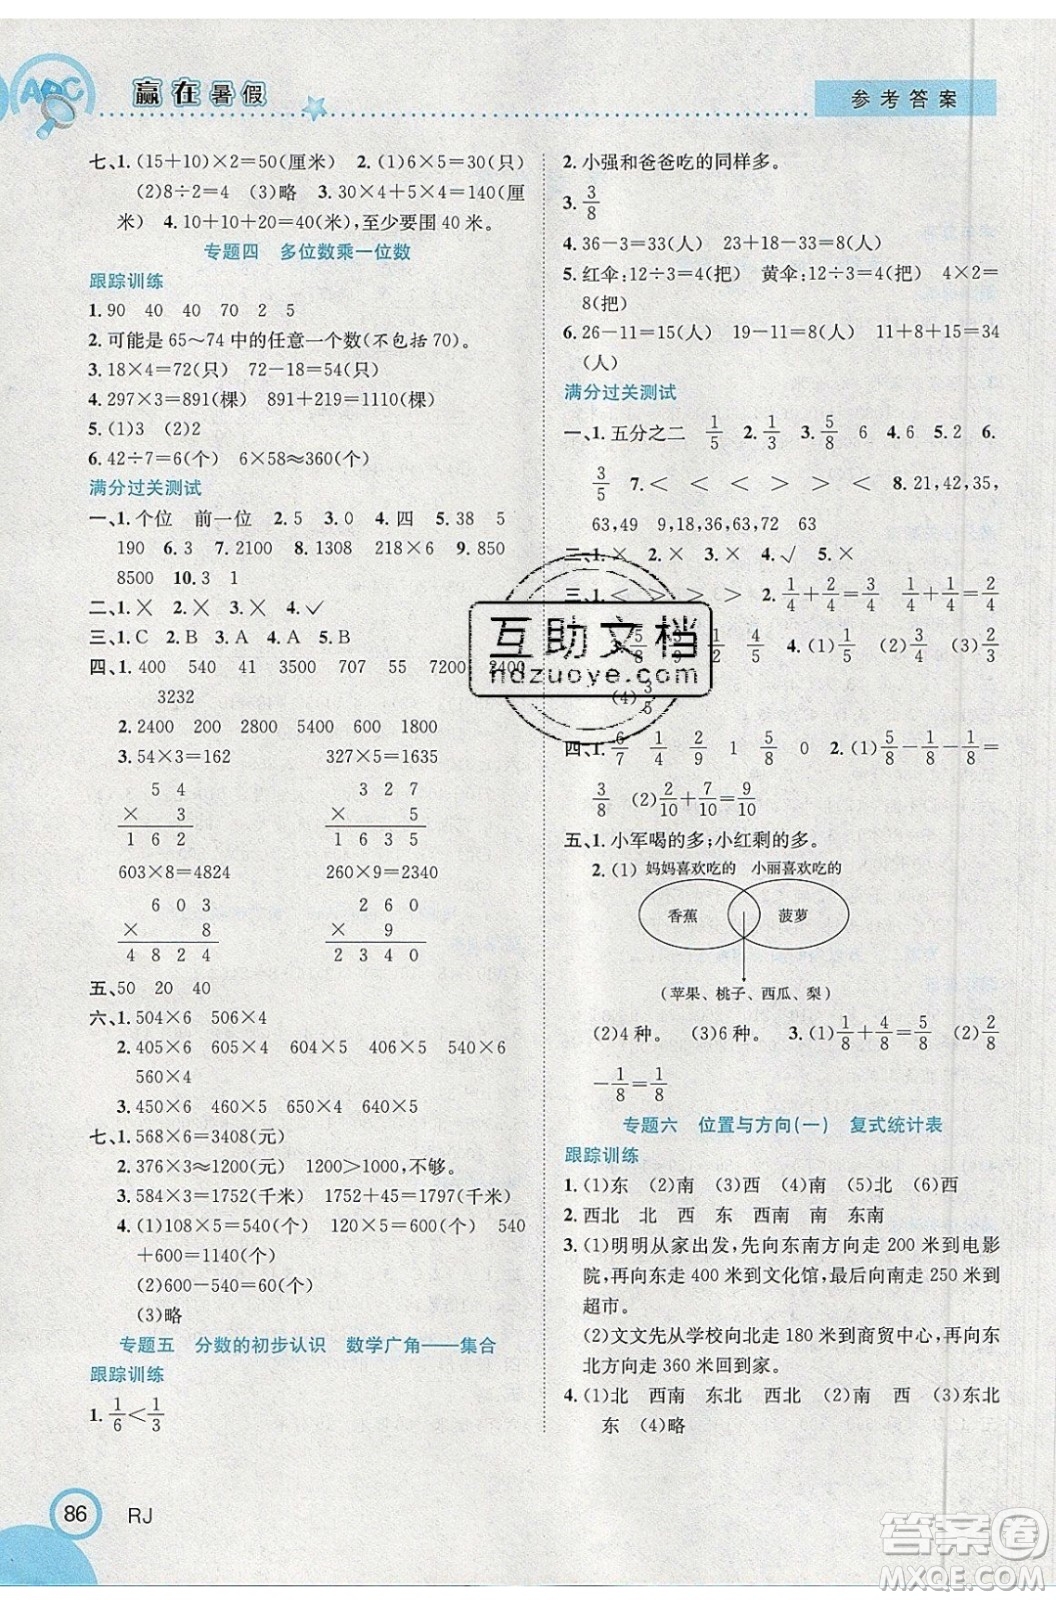 ABC
赢在暑假
参考答案
七、1.(15+10)×2=50(厘米) 2.(1)6×5=30(只)
(2)8÷2=4 (3)略 3.30×4+5×4=140(厘
米) 4.10+10+20=40(米),至少要围 40 米.
专题四 多位数乘一位数
跟踪训练
1.90 40 40 70 2 5
2.可能是 65～74 中的任意一个数(不包括 70)。
3.18×4=72(只) 72-18=54(只)
4.297×3=891(棵) 891+219=1110(棵)
5.(1)3 (2)2
6.42÷7=6(个) 6×58≈360(个)
满分过关测试
一、1.个位 前一位 2.5 3.0 4.四 5.38 5
190 6.3 7.2100 8.1308 218×6 9.850
8500 10.3 1
二、1.× 2.× 3.× 4.√
三、1.C 2.B 3.A 4.A 5.B
四、1.400 540 41 3500 707 55 7200 2400
3232
2.2400 200 2800 540 1000 2000
3.54×3=162 327×5=1635
5 4 3 2 7
× 3 × 5
1 6 2 1 6 3 5
603×8=4824 260×9=2340
6 0 3 2 6 0
× 8 × 9
4 8 2 4 2 3 4 0
五、50 20 40
六、1.504×6 506×4
2.405×6 450×6 604×5 406×5 540×6
560×4
3.450×6 640×5 650×4 540×6
七、1.568×6=3408(元)
2.376×3≈1200(元) 1200>1000,不够。
3.584×3=1752(千米) 1752+45=1797(千米)
4.(1)108×5=540(个) 120×5=600(个) 540
+600=1140(个)
(2)600-540=60(个)
(3)略
专题五 分数的初步认识 数学广角——集合
跟踪训练
1. 1/6<1/3
2.小强和爸爸吃的同样多。
3. 3/8
4.36-3=33(人) 23+18-33=8(人)
5.红伞:12÷3=4(把) 黄伞:12÷3=4(把) 4×2=
8(把)
6.26-11=15(人) 19-11=8(人) 11+8+15=34
(人)
满分过关测试
一、1.五分之二 1/5 2. 1/3 3. 5/8 6 4.6 5.2 6.
3/5 7.< < < > > < 8.21,42,35,
63,49 9,18,36,63,72 63
二、1.× 2.× 3.× 4.√ 5.×
三、1.< > > > 2. 1/4+2/4=3/4 1/4+1/4=2/4
5/8 2/2 4.(1)1/5 (2)2/6 (3)2/4
(4)3/5
四、1. 6/7 1/4 2/9 1 5/8 0 2.(1)5/8-1/8-1/8=
3/8 (2)2/10+7/10=9/10
五、1.小军喝的多;小红剩的多。
2.(1) 妈妈喜欢吃的 小丽喜欢吃的
香蕉 菠萝
(苹果、桃子、西瓜、梨)
(2)4 种。 (3)6 种。 3.(1)1/8+4/8=5/8 (2)2/8
-1/8=1/8
专题六 位置与方向(一) 复式统计表
跟踪训练
1.(1)东 (2)南 (3)南 (4)南 (5)北 (6)西
2.西北 北 西 东 西南 南 东南
3.(1)明明从家出发,先向东南方向走 200 米到电影
院,再向东走 400 米到文化馆,最后向南走 250 米到
超市。
(2)文文先从学校向北走 180 米到商贸中心,再向东
北方向走 360 米回到家。
4.(1)北 西南 东北 西北 (2)南 西 (3)东北
东 (4)略
互助文档
hdzuoye.com
86 RJ
答案圈
MXQE.COM